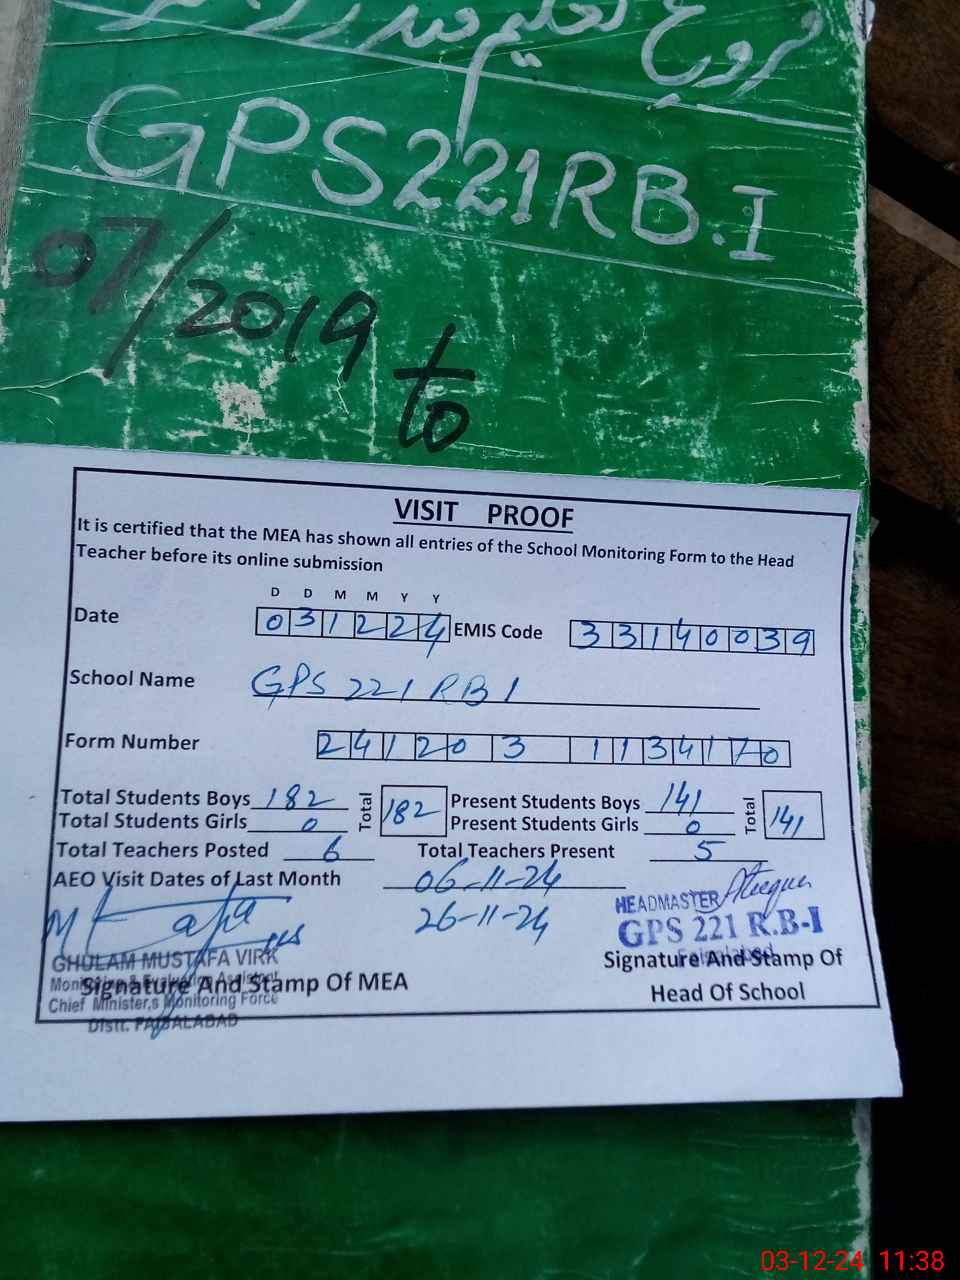 GPS 221 RB.I
07/2019
to
VISIT PROOF
It is certified that the MEA has shown all entries of the School Monitoring Form to the Head
Teacher before its online submission
D D M M Y Y
Date 031224 EMIS Code 33140039
School Name GPS 221 RB I
Form Number 241203 1134170
Total Students Boys 182 Total 182 Present Students Boys 141 Total 141
Total Students Girls 0 Present Students Girls 0
Total Teachers Posted 6 Total Teachers Present 5
AEO Visit Dates of Last Month 06-11-24
26-11-24
HEADMASTER
GPS 221 R.B-I
Faisalabad
GHULAM MUSTAFA VIRK
Monitoring & Evaluation Assistant
Chief Minister,s Monitoring Force
Distt. FAISALABAD
Signature And Stamp Of MEA
Signature And Stamp Of
Head Of School
03-12-24 11:38